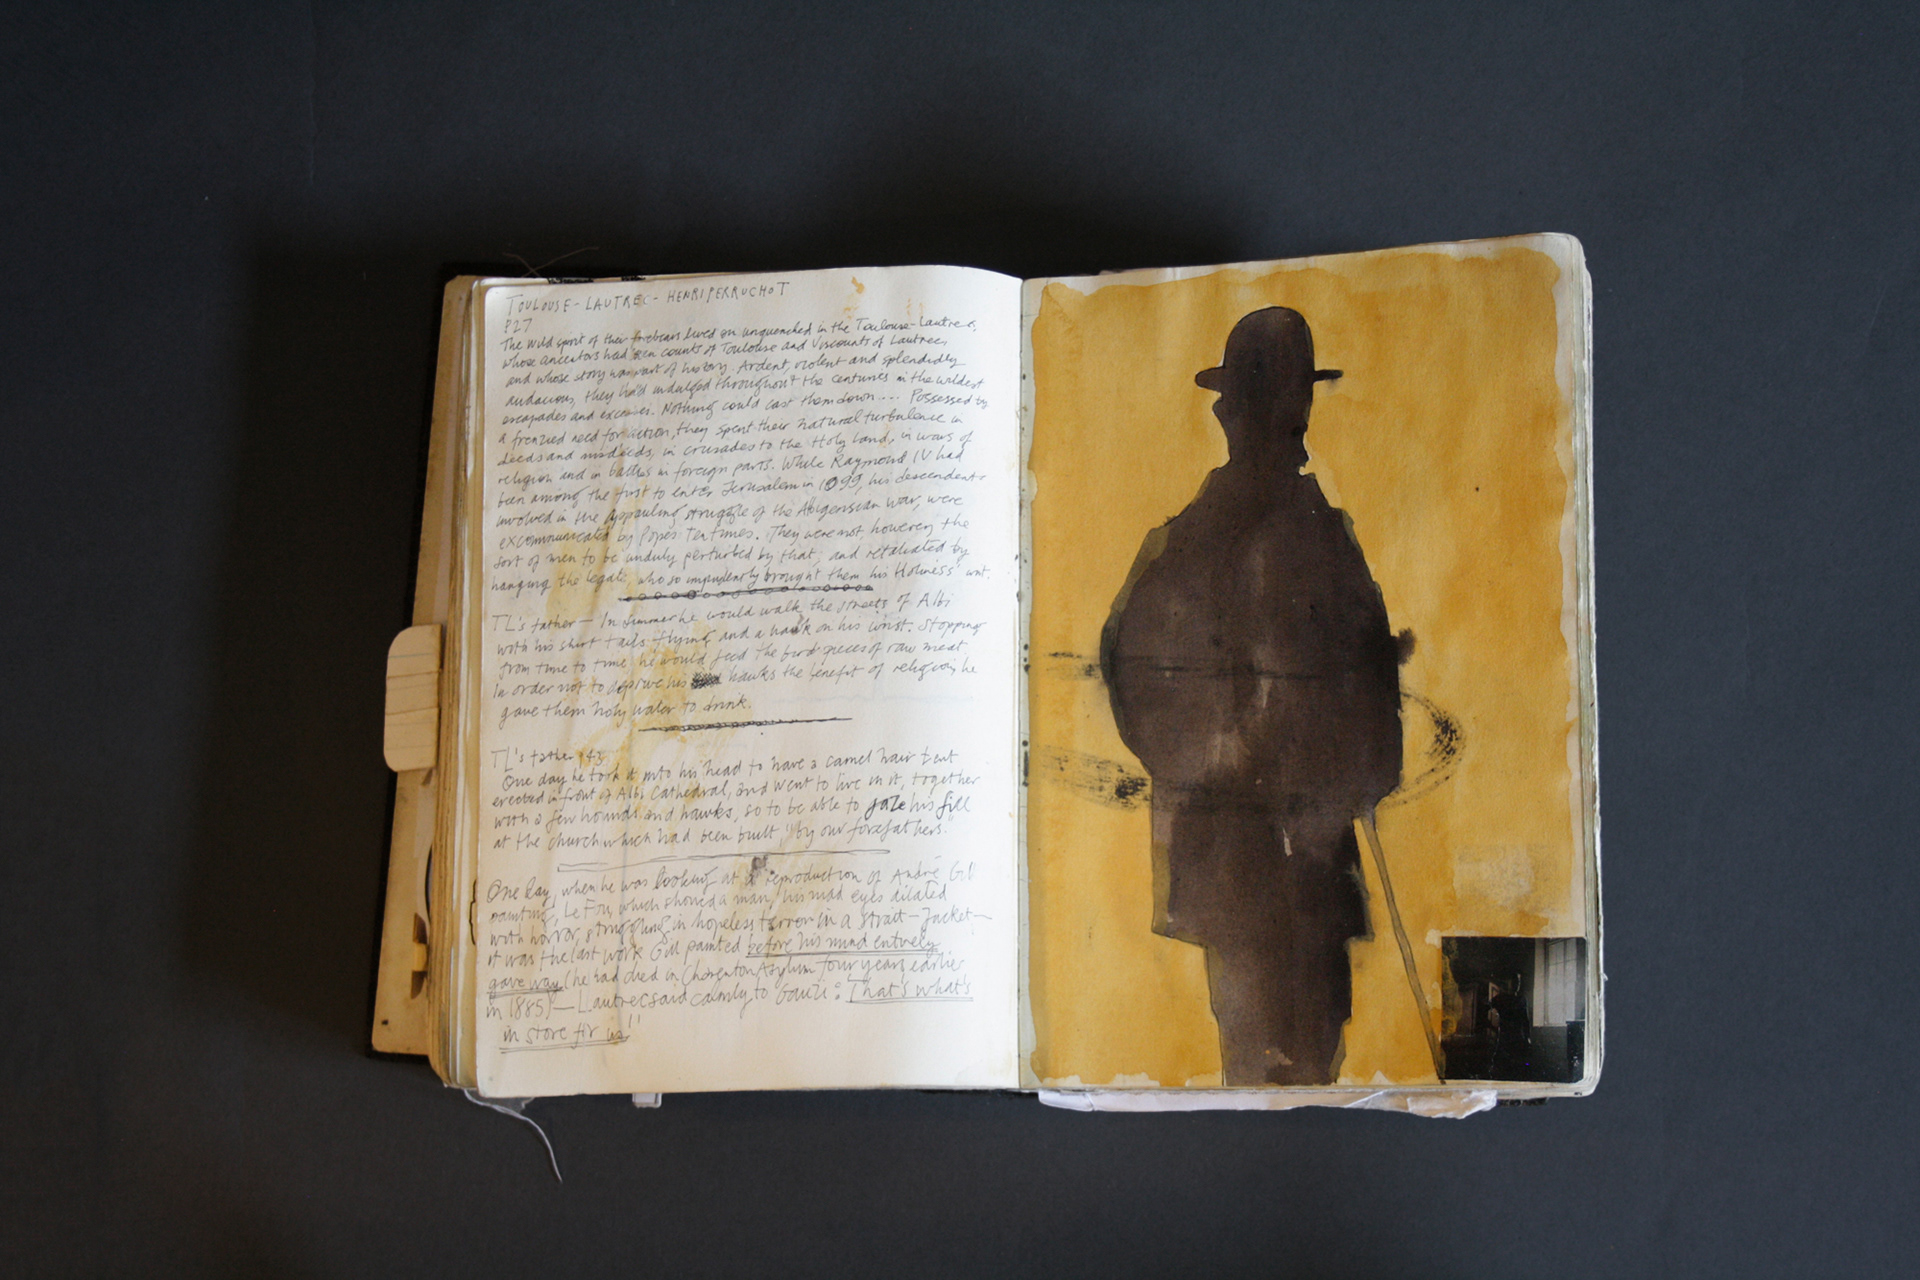 TOULOUSE-LAUTREC - HENRI PERRUCHOT
P27
The wild spirit of their forebears lived on unquenched in the Toulouse-Lautrecs,
whose ancestors had been counts of Toulouse and Viscounts of Lautrec,
and whose story was part of history. Ardent, violent and splendidly
audacious, they had indulged throughout the centuries in the wildest
escapades and excesses. Nothing could cast them down.... Possessed by
a frenzied need for action, they spent their natural turbulence in
deeds and misdeeds, in crusades to the Holy Land, in wars of
religion and in battles in foreign parts. While Raymond IV had
been among the first to enter Jerusalem in 1099, his descendents
involved in the appauling struggle of the Albigensian war, were
excommunicated by Popes ten times. They were not, however, the
sort of men to be unduly perturbed by that, and retaliated by
hanging the legate who so impudently brought them his Holiness' writ.
TL's father — In Summer he would walk the streets of Albi
with his shirt tails flying and a hawk on his wrist. Stopping
from time to time he would feed the bird pieces of raw meat.
In order not to deprive his hawks the benefit of religion, he
gave them holy water to drink.
TL's father 43
One day he took it into his head to have a camel hair tent
erected in front of Albi Cathedral, and went to live in it, together
with a few hounds and hawks, so to be able to gaze his fill
at the church which had been built "by our forefathers."
One day, when he was looking at a reproduction of André Gill
painting, Le Fou, which showed a man, his mad eyes dilated
with horror, struggling in hopeless terror in a strait-Jacket—
it was the last work Gill painted before his mind entirely
gave way (he had died in Charenton Asylum four years earlier
in 1885) — Lautrec said calmly to Gauzi: That's what's
in store for us"